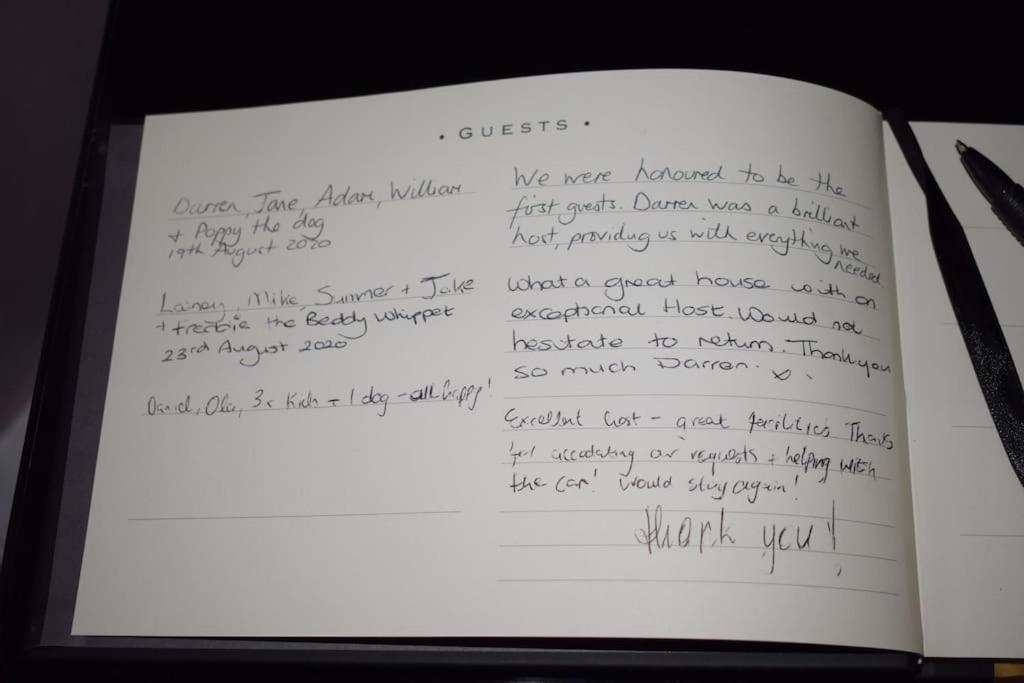 • GUESTS •
Darren, Jane, Adam, William
+ Poppy the dog
19th August 2020
We were honoured to be the
first guests. Darren was a brilliant
host, providing us with everything we
needed
Lainey, Mike, Summer + Jake
+ the Beddy Whippet
23rd August 2020
What a great house with an
exceptional Host. Would not
hesitate to return. Thank you
so much Darren. x.
Daniel, Ola, 3x + 1 dog - all happy!
Excellent host - great facilities Thanks
accodating our requests + helping with
the car! Would stay again!
thank you!